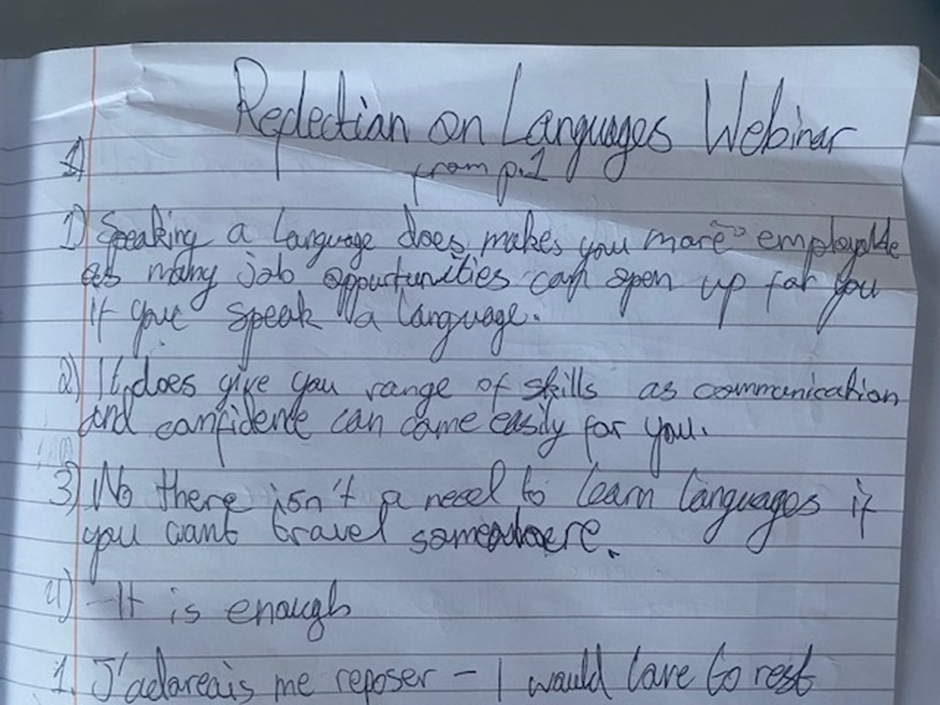 Reflection on Languages Webinar
from p.1
1) Speaking a language does makes you more employable
as many job oppurtunities can open up for you
if you speak a language.
2) It does give you range of skills as communication
and confidence can come easily for you.
3) No there isn't a need to learn languages if
you want travel somewhere.
4) - It is enough
1. J'adoreais me reposer - I would love to rest